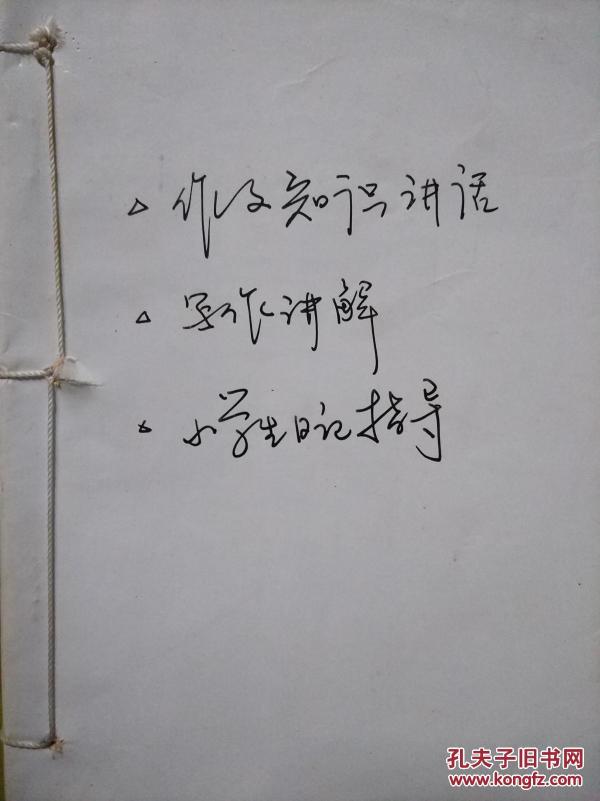 △ 作文知识讲话
△ 写作讲解
△ 小学生日记指导
孔夫子旧书网
www.kongfz.com